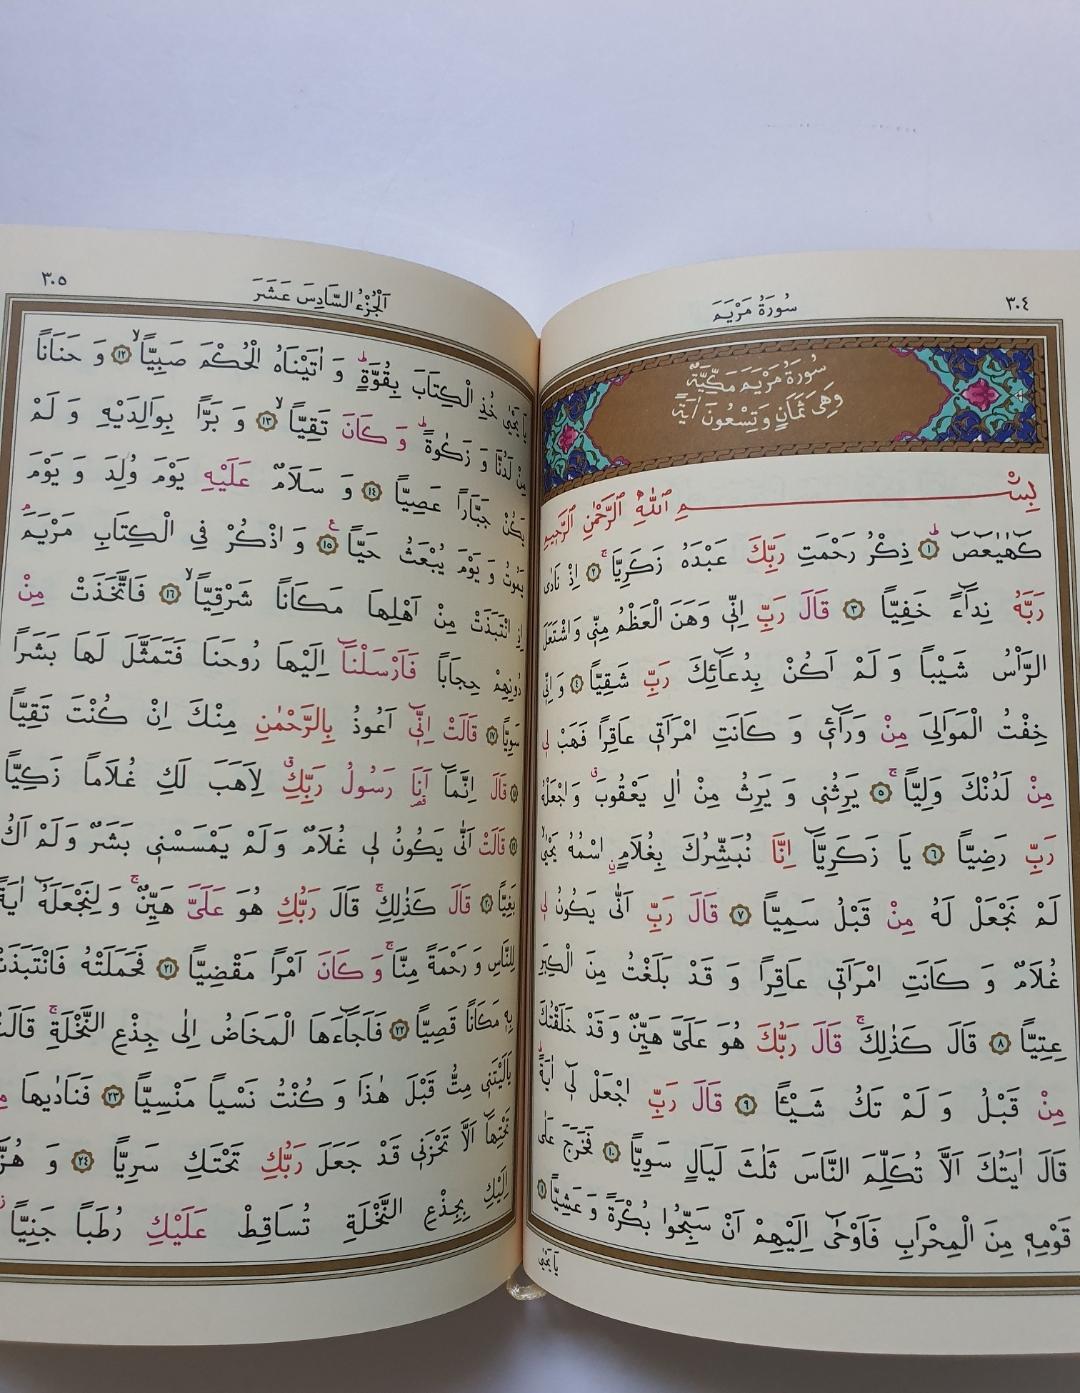 ٣٠٤
سُورَةُ مَرْيَمَ
سُورَةُ مَرْيَمَ مَكِّيَّةٌ
وَهِىَ ثَمَانٍ وَتِسْعُونَ اٰيَةً
بِسْمِ اللّٰهِ الرَّحْمٰنِ الرَّحٖيمِ
كٓهٰيٰعٓصٓ ۜ ﴿١﴾ ذِكْرُ رَحْمَتِ رَبِّكَ عَبْدَهُ زَكَرِيَّا ۚ ﴿٢﴾ اِذْ نَادٰى
رَبَّهُ نِدَٓاءً خَفِيًّا ﴿٣﴾ قَالَ رَبِّ اِنّٖى وَهَنَ الْعَظْمُ مِنّٖى وَاشْتَعَلَ
الرَّاْسُ شَيْبًا وَ لَمْ اَكُنْ بِدُعَٓائِكَ رَبِّ شَقِيًّا ﴿٤﴾ وَ اِنّٖى
خِفْتُ الْمَوَالِىَ مِنْ وَرَٓائٖ وَ كَانَتِ امْرَاَتٖى عَاقِرًا فَهَبْ لٖى
مِنْ لَدُنْكَ وَلِيًّا ۙ ﴿٥﴾ يَرِثُنٖى وَ يَرِثُ مِنْ اٰلِ يَعْقُوبَ ۗ وَ اجْعَلْهُ
رَبِّ رَضِيًّا ﴿٦﴾ يَا زَكَرِيَّٓا اِنَّا نُبَشِّرُكَ بِغُلَامٍ ۨاسْمُهُ يَحْيٰى
لَمْ نَجْعَلْ لَهُ مِنْ قَبْلُ سَمِيًّا ﴿٧﴾ قَالَ رَبِّ اَنّٰى يَكُونُ لٖى
غُلَامٌ وَ كَانَتِ امْرَاَتٖى عَاقِرًا وَ قَدْ بَلَغْتُ مِنَ الْكِبَرِ
عِتِيًّا ﴿٨﴾ قَالَ كَذٰلِكَ ۚ قَالَ رَبُّكَ هُوَ عَلَىَّ هَيِّنٌ وَ قَدْ خَلَقْتُكَ
مِنْ قَبْلُ وَ لَمْ تَكُ شَيْـًٔا ﴿٩﴾ قَالَ رَبِّ اجْعَلْ لٖٓى اٰيَةً ۜ
قَالَ اٰيَتُكَ اَلَّا تُكَلِّمَ النَّاسَ ثَلٰثَ لَيَالٍ سَوِيًّا ﴿١٠﴾ فَخَرَجَ عَلٰى
قَوْمِهٖ مِنَ الْمِحْرَابِ فَاَوْحٰٓى اِلَيْهِمْ اَنْ سَبِّحُوا بُكْرَةً وَ عَشِيًّا ﴿١١﴾
يَا يَحْيٰى
اَلْجُزْءُ السَّادِسَ عَشَرَ
٣٠٥
يَا يَحْيٰى خُذِ الْكِتَابَ بِقُوَّةٍ ۜ وَ اٰتَيْنَاهُ الْحُكْمَ صَبِيًّا ۙ ﴿١٢﴾ وَ حَنَانًا
مِنْ لَدُنَّا وَ زَكٰوةً ۜ وَ كَانَ تَقِيًّا ۙ ﴿١٣﴾ وَ بَرًّا بِوَالِدَيْهِ وَ لَمْ
يَكُنْ جَبَّارًا عَصِيًّا ﴿١٤﴾ وَ سَلَامٌ عَلَيْهِ يَوْمَ وُلِدَ وَ يَوْمَ
يَمُوتُ وَ يَوْمَ يُبْعَثُ حَيًّا ۟ ﴿١٥﴾ وَ اذْكُرْ فِى الْكِتَابِ مَرْيَمَ ۢ
اِذِ انْتَبَذَتْ مِنْ اَهْلِهَا مَكَانًا شَرْقِيًّا ۙ ﴿١٦﴾ فَاتَّخَذَتْ مِنْ
دُونِهِمْ حِجَابًا فَاَرْسَلْنَٓا اِلَيْهَا رُوحَنَا فَتَمَثَّلَ لَهَا بَشَرًا
سَوِيًّا ﴿١٧﴾ قَالَتْ اِنّٖٓى اَعُوذُ بِالرَّحْمٰنِ مِنْكَ اِنْ كُنْتَ تَقِيًّا
﴿١٨﴾ قَالَ اِنَّمَٓا اَنَا رَسُولُ رَبِّكِ ۗ لِاَهَبَ لَكِ غُلَامًا زَكِيًّا
﴿١٩﴾ قَالَتْ اَنّٰى يَكُونُ لٖى غُلَامٌ وَ لَمْ يَمْسَسْنٖى بَشَرٌ وَ لَمْ اَكُ
بَغِيًّا ﴿٢٠﴾ قَالَ كَذٰلِكِ ۚ قَالَ رَبُّكِ هُوَ عَلَىَّ هَيِّنٌ ۚ وَ لِنَجْعَلَهُٓ اٰيَةً
لِلنَّاسِ وَ رَحْمَةً مِنَّا ۚ وَ كَانَ اَمْرًا مَقْضِيًّا ﴿٢١﴾ فَحَمَلَتْهُ فَانْتَبَذَتْ
بِهٖ مَكَانًا قَصِيًّا ﴿٢٢﴾ فَاَجَٓاءَهَا الْمَخَاضُ اِلٰى جِذْعِ النَّخْلَةِ ۚ قَالَتْ
يَالَيْتَنٖى مِتُّ قَبْلَ هٰذَا وَ كُنْتُ نَسْيًا مَنْسِيًّا ﴿٢٣﴾ فَنَادٰيهَا
تَحْتِهَٓا اَلَّا تَحْزَنٖى قَدْ جَعَلَ رَبُّكِ تَحْتَكِ سَرِيًّا ﴿٢٤﴾ وَ هُزّٖٓى
اِلَيْكِ بِجِذْعِ النَّخْلَةِ تُسَاقِطْ عَلَيْكِ رُطَبًا جَنِيًّا